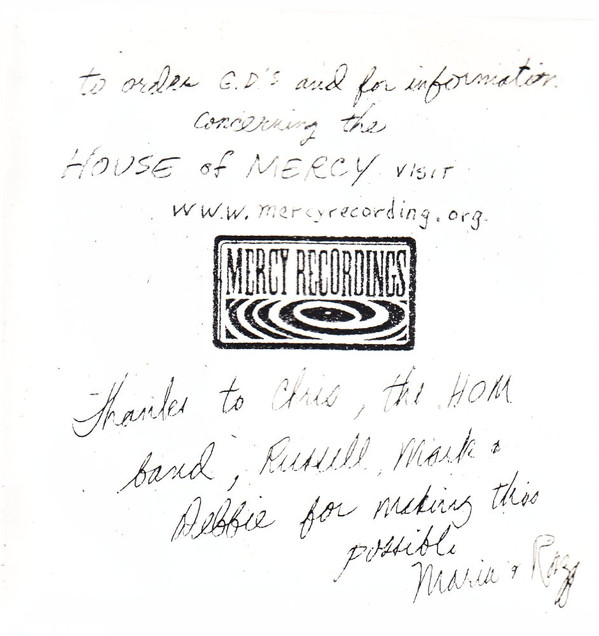 to order C.D.'s and for information
concerning the
HOUSE of MERCY visit
www.mercyrecording.org.
MERCY RECORDINGS
Thanks to Chris, the HOM
band, Russell, Mark &
Debbie for making this
possible
Maria &